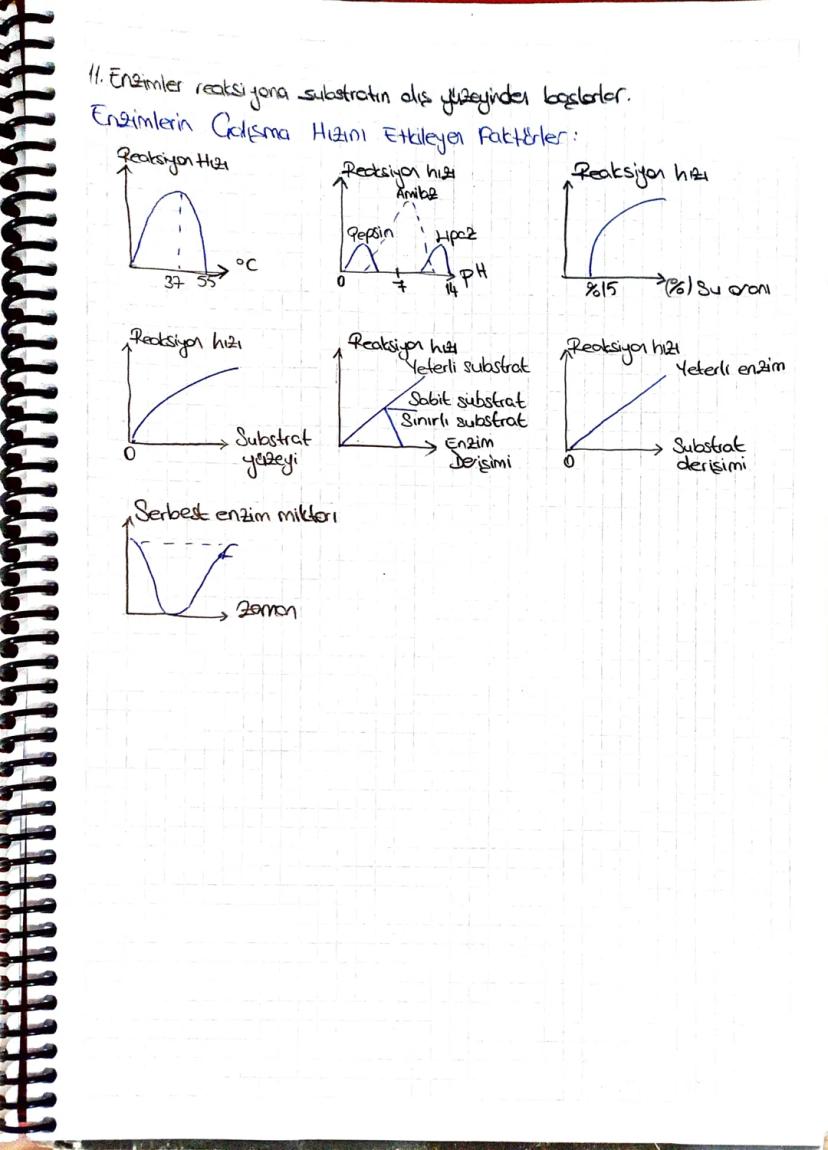 11. Enzimler reaksiyona substratın dış yüzeyinden başlarlar.
Enzimlerin Çalışma Hızını Etkileyen Faktörler:
Reaksiyon Hızı
37 55 °C
Reaksiyon hızı
Amilaz
Pepsin Lipaz
0 7 14 pH
Reaksiyon hızı
%15 (%) Su oranı
Reaksiyon hızı
0 Substrat
yüzeyi
Reaksiyon hızı
Yeterli substrat
Sabit substrat
Sınırlı substrat
Enzim
Derişimi
Reaksiyon hızı
Yeterli enzim
0 Substrat
derişimi
Serbest enzim miktarı
Zaman